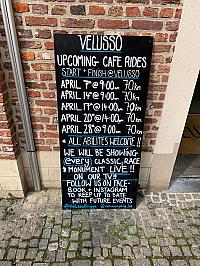 VELUSSO
UPCOMING CAFE RIDES
START + FINISH @VELUSSO
APRIL 7th @ 9:00 - 70km
APRIL 14th @ 9:00 - 70km
APRIL 17th @ 14:00 - 70km
APRIL 20th @ 14:00 - 70km
APRIL 28th @ 9:00 - 70km
* ALL ABILITES WELCOME!! *
WE WILL BE SHOWING
@very CLASSIC, RACE
& MONUMENT LIVE!!
ON OUR TV!!
FOLLOW US ON FACE-
BOOK + INSTAGRAM
TO KEEP UP TO DATE
WITH FUTURE EVENTS